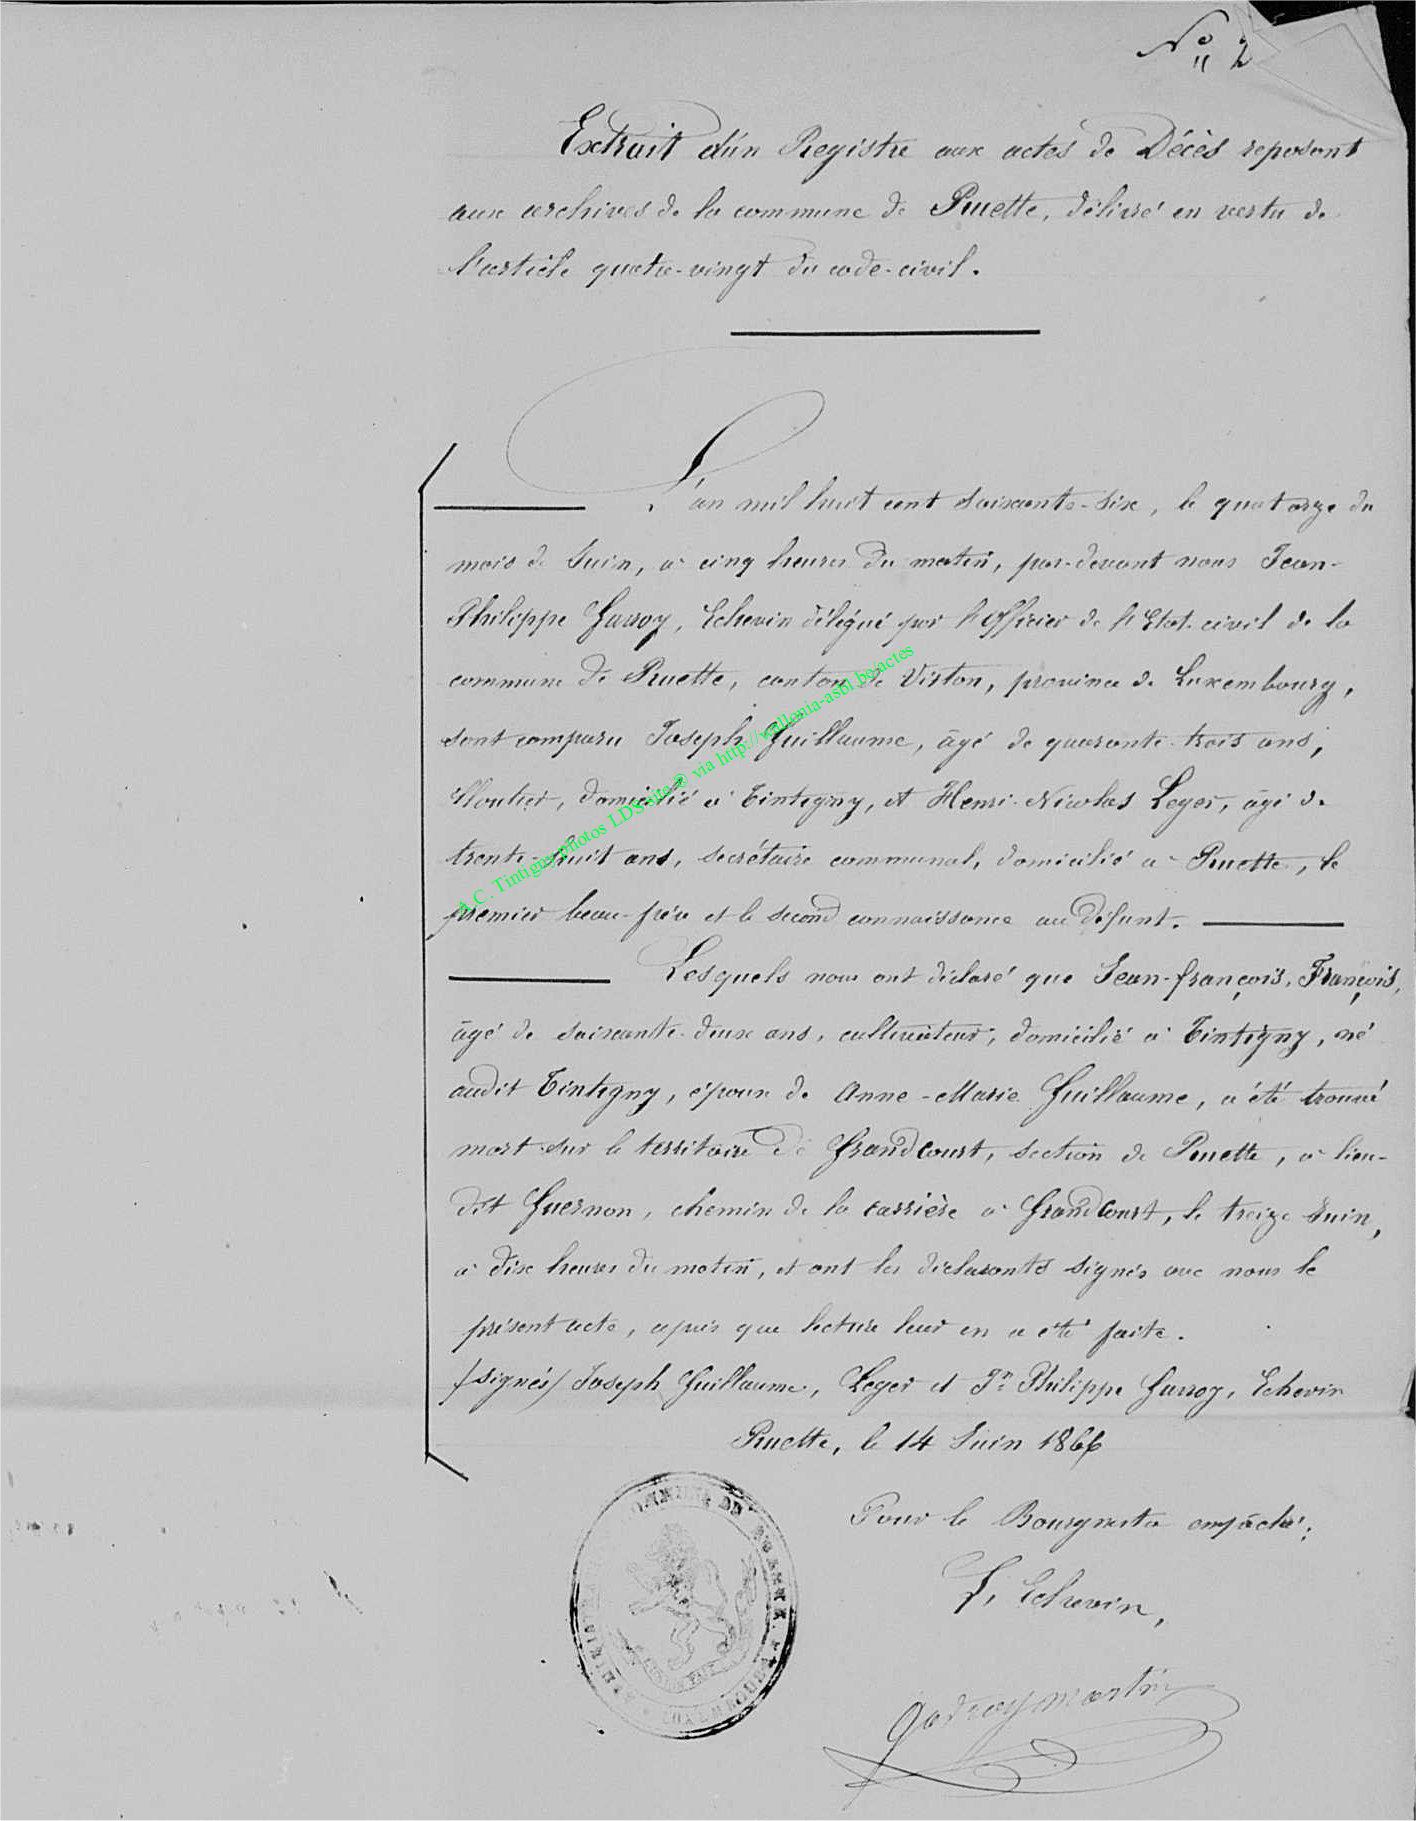 N° 2
Extrait d'un Registre aux actes de Décès reposant
aux archives de la commune de Ruette, délivré en vertu de
l'article quatre-vingt du code-civil.
L'an mil huit cent soixante-six, le quatorze du
mois de Juin, à cinq heures du matin, par-devant nous Jean-
Philippe Gavroy, Echevin délégué par l'Officier de l'Etat-civil de la
commune de Ruette, canton de Virton, province de Luxembourg,
sont comparu Joseph Guillaume, âgé de quarante-trois ans,
Cloutier, domicilié à Tintigny, et Henri-Nicolas Leger, âgé de
trente-huit ans, secrétaire communal, domicilié à Ruette, le
premier beau-frère et le second connaissance au défunt.
Lesquels nous ont déclaré que Jean-françois, François,
âgé de soixante-deux ans, cultivateur, domicilié à Tintigny, né
audit Tintigny, époux de Anne-Marie Guillaume, a été trouvé
mort sur le territoire de Grandcourt, section de Ruette, à lieu-
dit Guernon, chemin de la carrière à Grandcourt, le treize Juin,
à dix heures du matin, et ont les déclarants signés avec nous le
présent acte, après que lecture leur en a été faite.
(signés) Joseph Guillaume, Leger et Jn Philippe Gavroy, Echevin
Ruette, le 14 Juin 1866
Pour le Bourgmestre empêché:
L'Echevin,
godroy martin
A.C. Tintigny photos LDS site © via http://wallonia-asbl.be/actes
COMMUNE DE
LUXEMBOURG